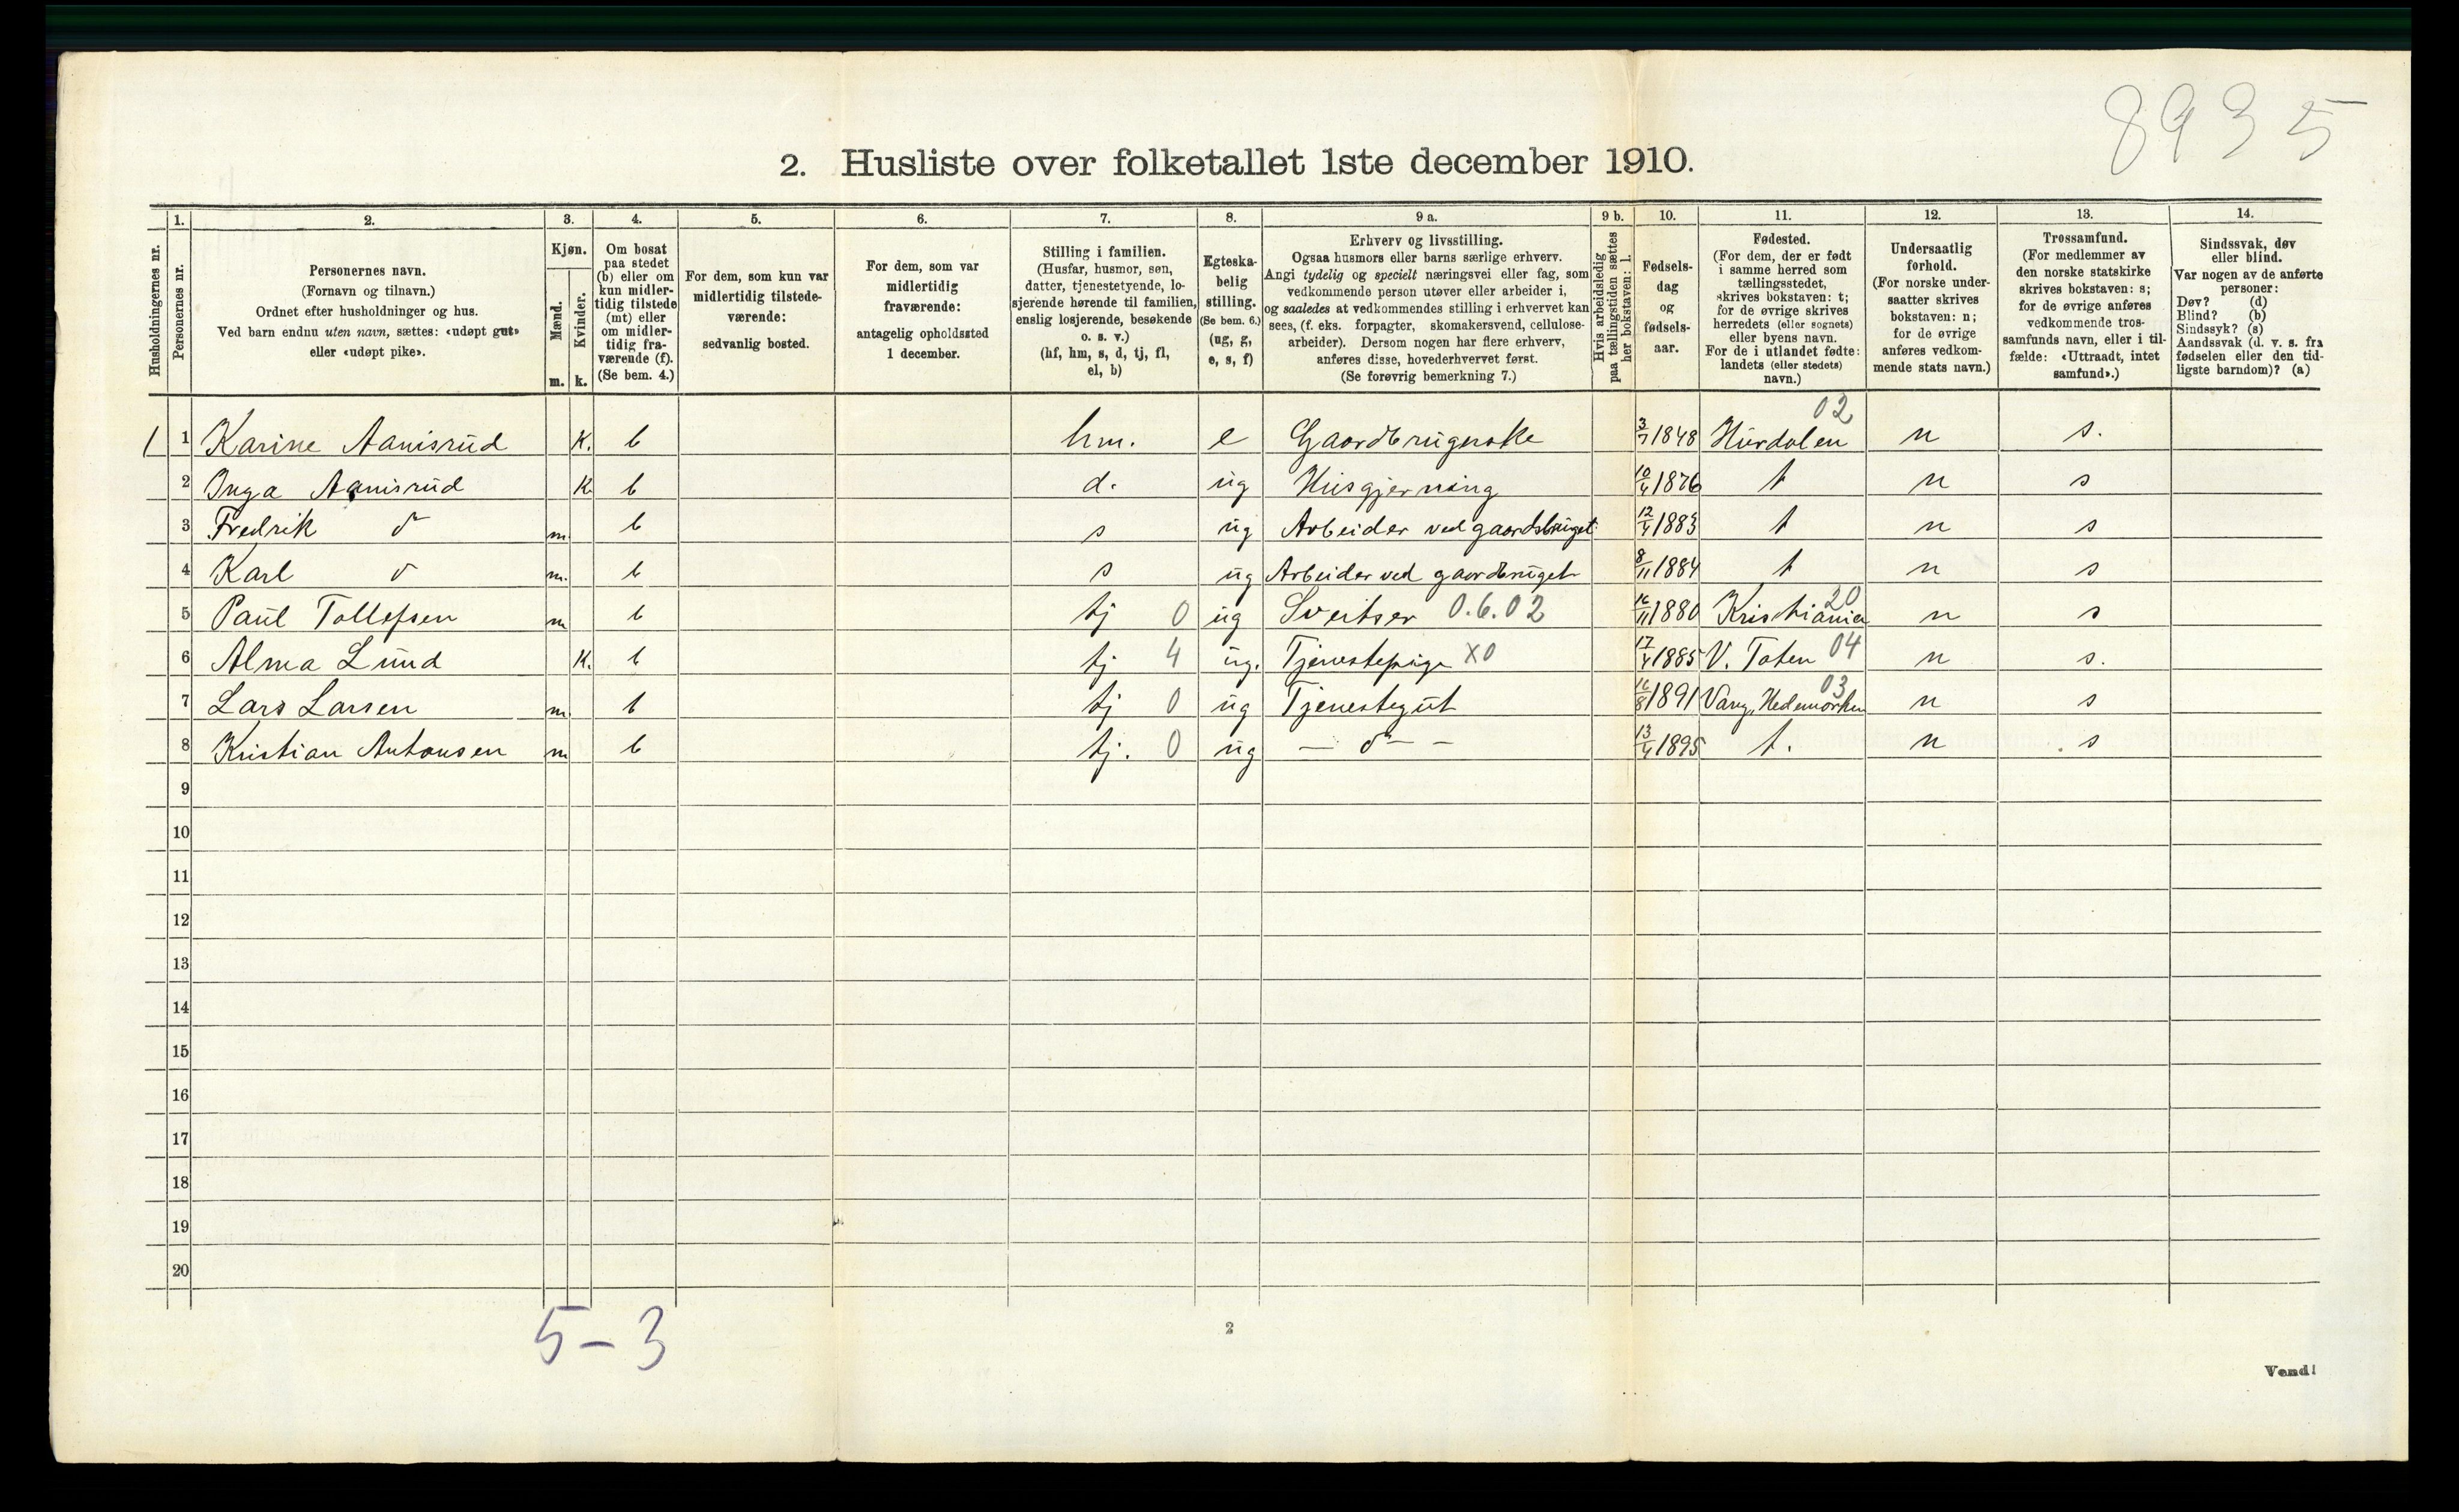 8935
2. Husliste over folketallet 1ste december 1910.
Husholdningernes nr.
1. Personernes nr.
2. Personernes navn.
(Fornavn og tilnavn.)
Ordnet efter husholdninger og hus.
Ved barn endnu uten navn, sættes: «udøpt gut»
eller «udøpt pike».
3. Kjøn.
Mænd. m.
Kvinder. k.
4. Om bosat
paa stedet
(b) eller om
kun midler-
tidig tilstede
(mt) eller
om midler-
tidig fra-
værende (f).
(Se bem. 4.)
5. For dem, som kun var
midlertidig tilstede-
værende:
sedvanlig bosted.
6. For dem, som var
midlertidig
fraværende:
antagelig opholdssted
1 december.
7. Stilling i familien.
(Husfar, husmor, søn,
datter, tjenestetyende, lo-
sjerende hørende til familien,
enslig losjerende, besøkende
o. s. v.)
(hf, hm, s, d, tj, fl,
el, b)
8. Egteska-
belig
stilling.
(Se bem. 6.)
(ug, g,
e, s, f)
9 a. Erhverv og livsstilling.
Ogsaa husmors eller barns særlige erhverv.
Angi tydelig og specielt næringsvei eller fag, som
vedkommende person utøver eller arbeider i,
og saaledes at vedkommendes stilling i erhvervet kan
sees, (f. eks. forpagter, skomakersvend, cellulose-
arbeider). Dersom nogen har flere erhverv,
anføres disse, hovederhvervet først.
(Se forøvrig bemerkning 7.)
9 b. Hvis arbeidsledig
paa tællingstiden sættes
her bokstaven: l.
10. Fødsels-
dag
og
fødsels-
aar.
11. Fødested.
(For dem, der er født
i samme herred som
tællingsstedet,
skrives bokstaven: t;
for de øvrige skrives
herredets (eller sognets)
eller byens navn.
For de i utlandet fødte:
landets (eller stedets)
navn.)
12. Undersaatlig
forhold.
(For norske under-
saatter skrives
bokstaven: n;
for de øvrige
anføres vedkom-
mende stats navn.)
13. Trossamfund.
(For medlemmer av
den norske statskirke
skrives bokstaven: s;
for de øvrige anføres
vedkommende tros-
samfunds navn, eller i til-
fælde: «Uttraadt, intet
samfund».)
14. Sindssvak, døv
eller blind.
Var nogen av de anførte
personer:
Døv? (d)
Blind? (b)
Sindssyk? (s)
Aandssvak (d. v. s. fra
fødselen eller den tid-
ligste barndom)? (a)
02
1 1 Karine Aanisrud K. b hm. e Gaardbrugerske 3/7 1848 Hurdalen n s.
2 Inga Aanisrud K b d. ug Husgjerning 10/4 1876 t n s
3 Fredrik do m b s ug Arbeider ved gaardsbruget 12/4 1883 t n s
4 Karl do m. b s ug Arbeider ved gaardbruget 8/11 1884 t n s
5 Paul Tollefsen m b tj 0 ug Sveitser 0.6.02 16/11 1880 Kristiania 20 n s
6 Alma Lund K. b tj 4 ug. Tjenestepige X0 17/4 1885 V. Toten 04 n s.
7 Lars Larsen m b tj 0 ug Tjenestegut 16/8 1891 Vang, Hedemarken 03 n s
8 Kristian Antonsen m b tj. 0 ug — do — 13/4 1895 t. n s
9
10
11
12
13
14
15
16
17
18
19
20
5 – 3
2
Vend!